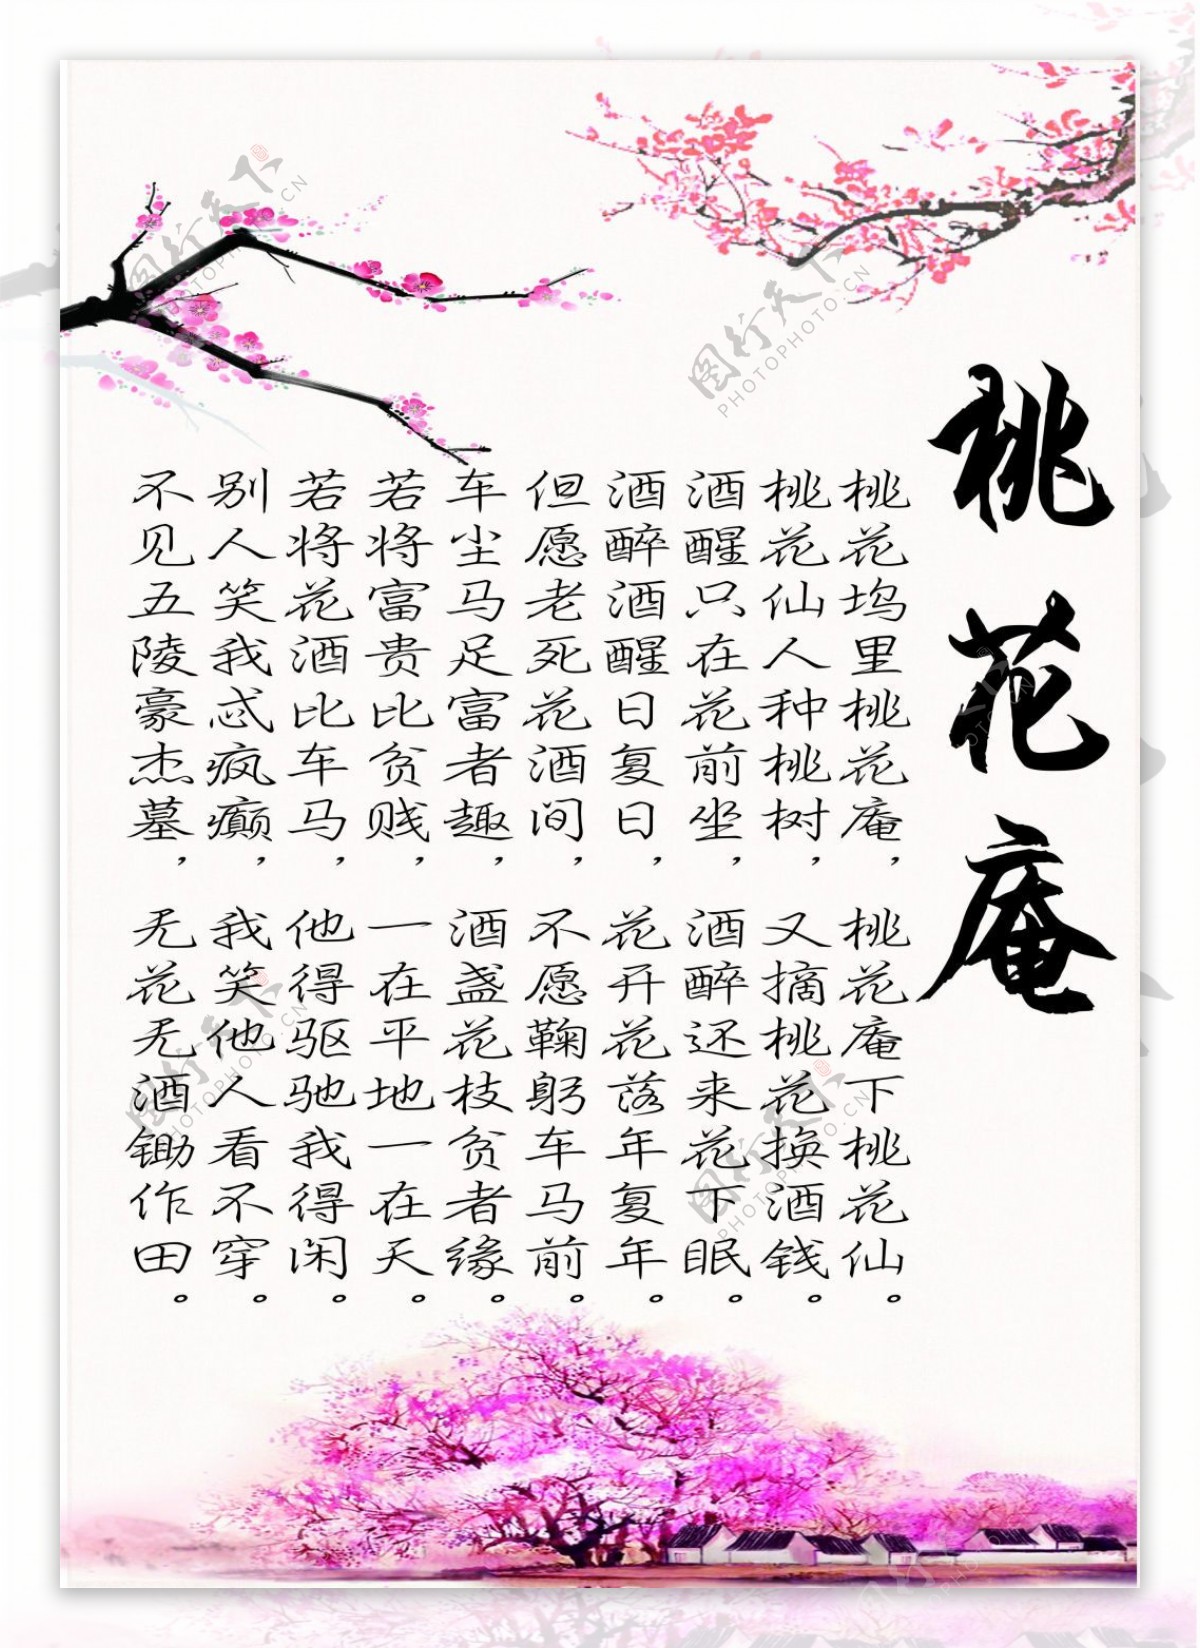 桃花庵
桃花坞里桃花庵，桃花庵下桃花仙。
桃花仙人种桃树，又摘桃花换酒钱。
酒醒只在花前坐，酒醉还来花下眠。
酒醉酒醒日复日，花开花落年复年。
但愿老死花酒间，不愿鞠躬车马前
车尘马足富者趣，酒盏花枝贫者缘。
若将富贵比贫贱，一在平地一在天。
若将花酒比车马，他得驱驰我得闲。
别人笑我忒疯癫，我笑他人看不穿。
不见五陵豪杰墓，无花无酒锄作田。
图行天下
PHOTOPHOTO.CN
图行天下
PHOTOPHOTO.CN
图行天下
PHOTOPHOTO.CN
图行天下
PHOTOPHOTO.CN